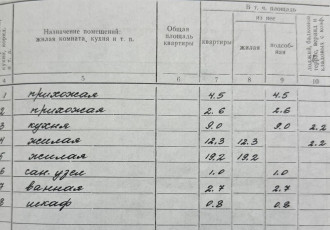 Назначение помещений: жилая комната, кухня и т. п.
Общая площадь квартиры
В т. ч. площадь
из нее
квартиры
жилая
подсобная
4 5 6 7 8 9 10
1 прихожая 4.5 4.5
2 прихожая 2.6 2.6
3 кухня 9.0 9.0 2.2
4 жилая 12.3 12.3 2.2
5 жилая 19.2 19.2
6 сан. узел 1.0 1.0
7 ванная 2.7 2.7
8 шкаф 0.8 0.8